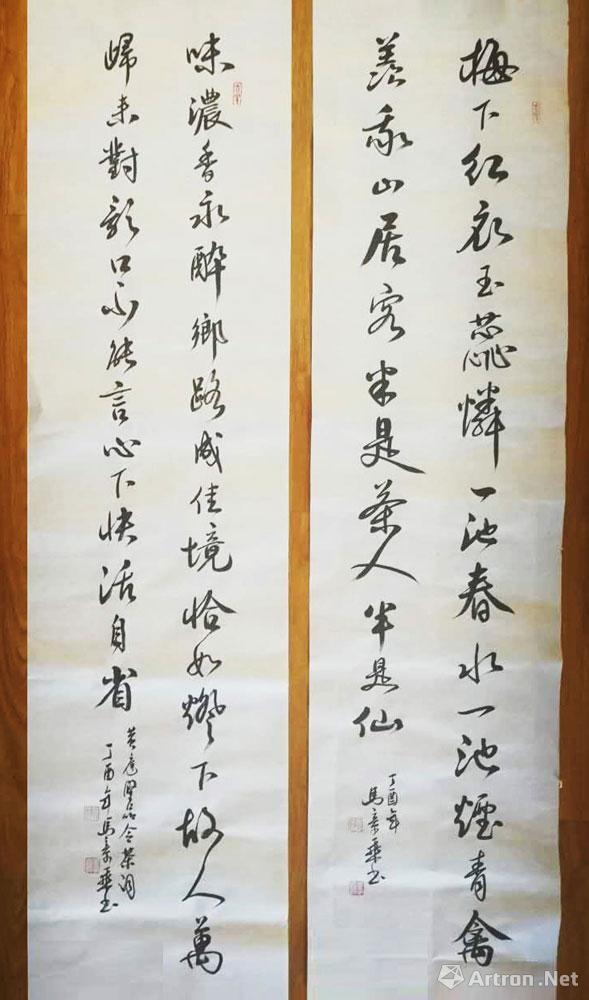 梅下红衣玉蕊憐一池春水一池煙青禽
羨我山居客半是茶人半是仙
丁酉年
馬
書
味濃香永醉鄉路成佳境恰如燈下故人萬
歸來對影口不能言心下快活自省
黃庭堅品令茶詞
丁酉年馬
書
Artron.Net